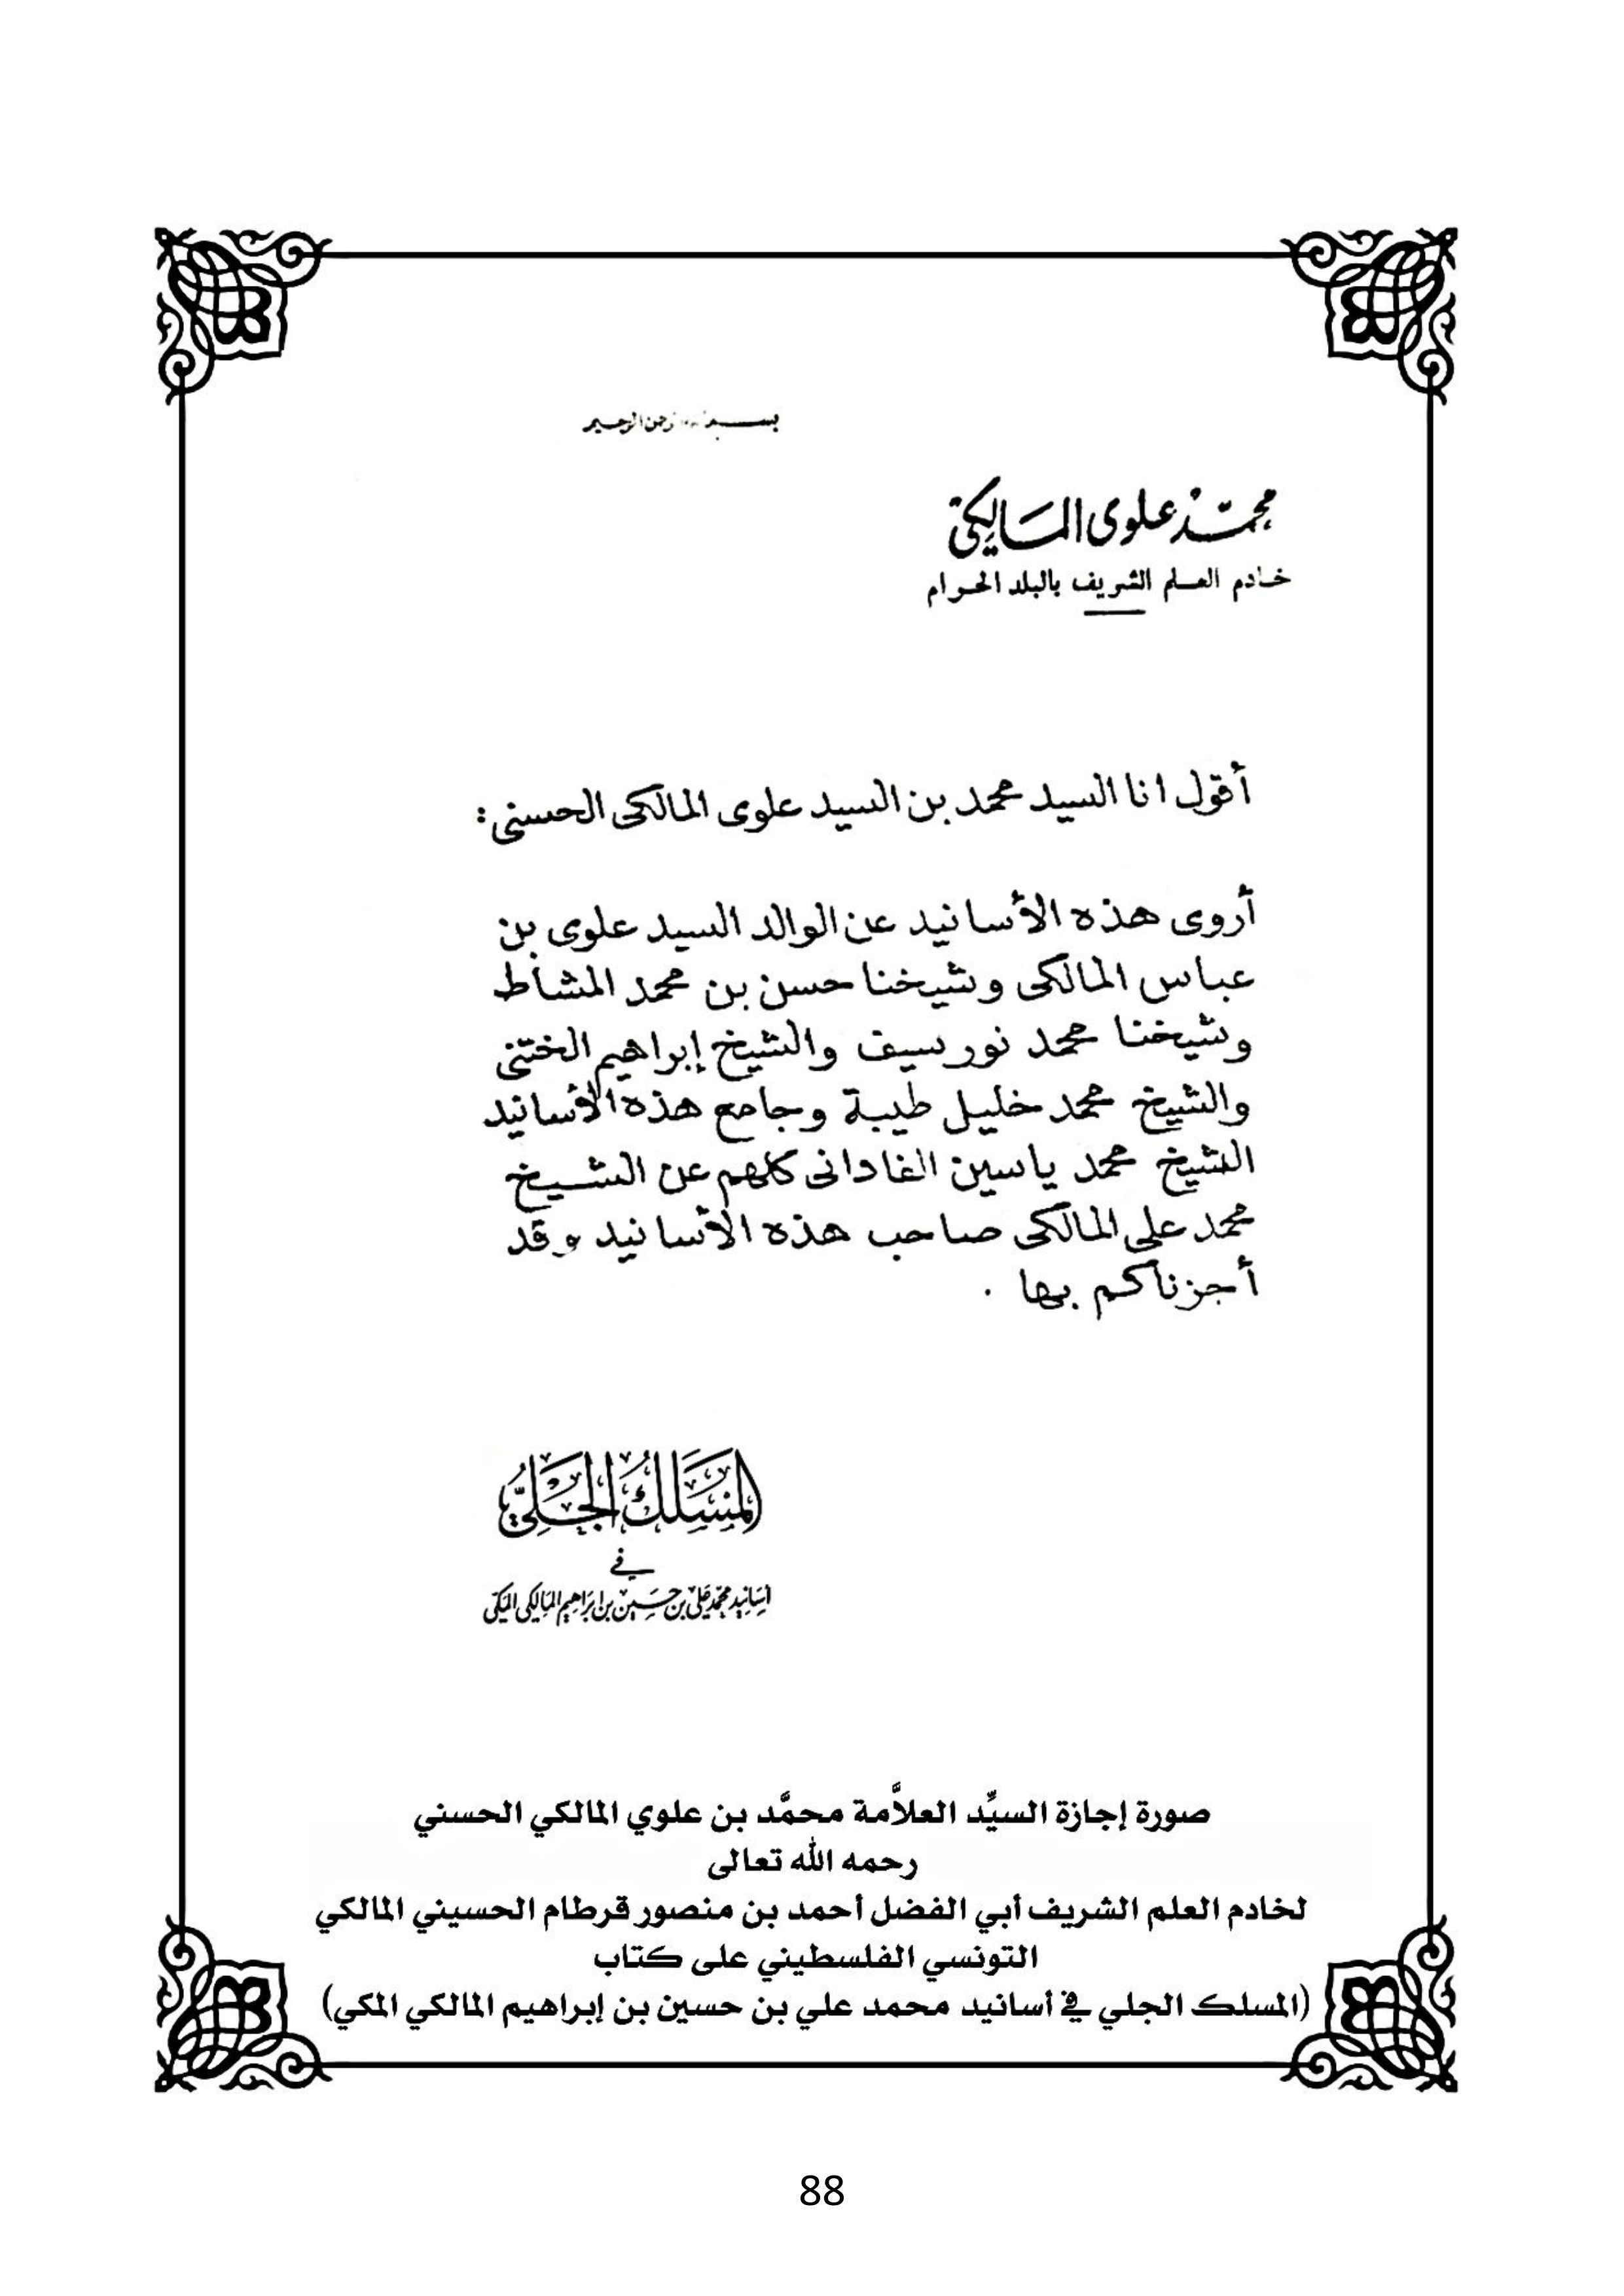 بسم الله الرحمن الرحيم
محمّد علوى المالكى
خادم العلم الشريف بالبلد الحرام
أقول انا السيد محمد بن السيد علوى المالكى الحسنى :
أروى هذه الأسانيد عن الوالد السيد علوى بن
عباس المالكى وشيخنا حسن بن محمد المشاط
وشيخنا محمد نور سيف والشيخ إبراهيم الختنى
والشيخ محمد خليل طيبة وجامع هذه الأسانيد
الشيخ محمد ياسين الفادانى كلهم عن الشيخ
محمد على المالكى صاحب هذه الأسانيد وقد
أجزناكم بها .
المسلك الجلي
في
أسانيد محمد علي بن حسين بن إبراهيم المالكي المكي
صورة إجازة السيِّد العلاَّمة محمَّد بن علوي المالكي الحسني
رحمه الله تعالى
لخادم العلم الشريف أبي الفضل أحمد بن منصور قرطام الحسيني المالكي
التونسي الفلسطيني على كتاب
(المسلك الجلي في أسانيد محمد علي بن حسين بن إبراهيم المالكي المكي)
88